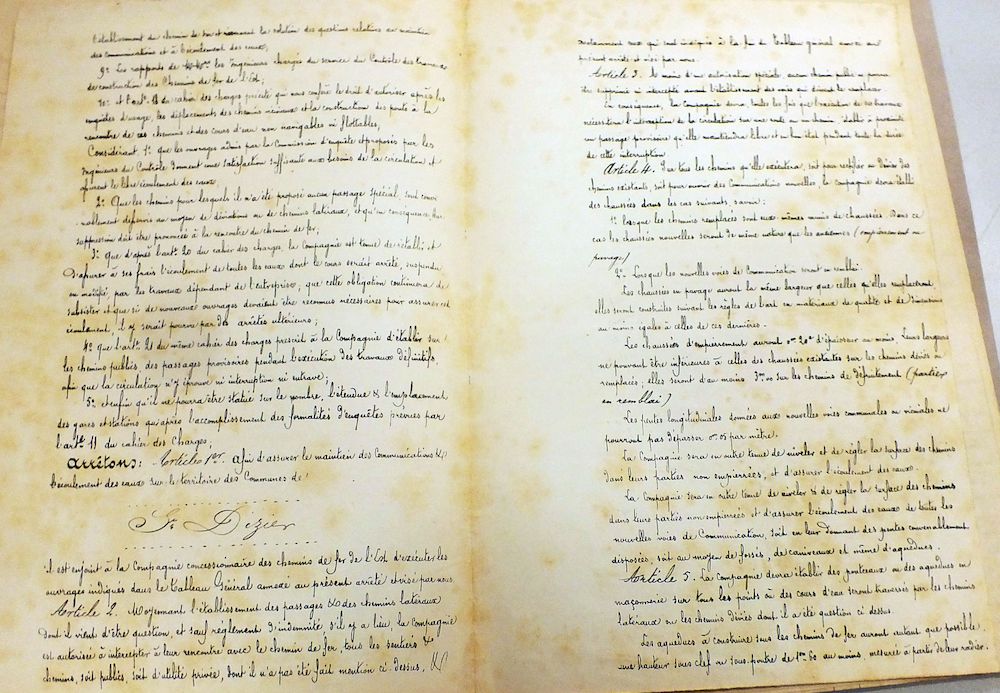 l'établissement du chemin de fer et concernant la solution des questions relatives au maintien
des communications et à l'écoulement des eaux;
9° Les rapports de MM. les Ingénieurs chargés du service du Contrôle des travaux
de construction des Chemins de fer de l'Est;
10° et l'art. 11 du cahier des charges précité qui nous confère le droit d'autoriser après les
enquêtes d'usage, les déplacements des chemins vicinaux et la construction des ponts à la
rencontre de ces chemins et des cours d'eau non navigables ni flottables,
Considérant 1° que les ouvrages admis par la Commission d'enquête et proposés par les
Ingénieurs du Contrôle donnent une satisfaction suffisante aux besoins de la circulation et
assurent le libre écoulement des eaux;
2° Que les chemins pour lesquels il n'a été proposé aucun passage spécial, sont conve-
nablement desservis au moyen de déviations ou de chemins latéraux, et qu'en conséquence, leur
suppression doit être prononcée à la rencontre du chemin de fer;
3° que d'après l'art. 20 du cahier des charges, la Compagnie est tenue de rétablir et
d'assurer à ses frais l'écoulement de toutes les eaux dont le cours serait arrêté, suspendu
ou modifié, par les travaux dépendant de l'entreprise; que cette obligation continuera de
subsister et que si de nouveaux ouvrages devaient être reconnus nécessaires pour assurer cet
écoulement, il y serait pourvu par des arrêtés ultérieurs;
4° que l'art. 21 du même cahier des charges prescrit à la Compagnie d'établir sur
les chemins publics, des passages provisoires pendant l'exécution des travaux définitifs,
afin que la circulation n'y éprouve ni interruption ni entrave;
5° et enfin qu'il ne pourra être statué sur le nombre, l'étendue & l'emplacement
des gares et stations qu'après l'accomplissement des formalités d'enquêtes prévues par
l'art. 11 du cahier des Charges;
Arrêtons: Article 1er. Afin d'assurer le maintien des Communications &
l'écoulement des eaux sur le territoire des Communes de
St Dizier
il est enjoint à la Compagnie concessionnaire des chemins de fer de l'Est d'exécuter les
ouvrages indiqués dans le Tableau Général annexé au présent arrêté et visé par nous.
Article 2. Moyennant l'établissement des passages & des chemins latéraux
dont il vient d'être question, et sauf règlement d'indemnité s'il y a lieu, la Compagnie
est autorisée à intercepter à leur rencontre avec le chemin de fer, tous les sentiers &
chemins, soit publics, soit d'utilité privée, dont il n'a pas été fait mention ci-dessus, &
notamment ceux qui sont indiqués à la fin du tableau général annexé au
présent arrêté et visé par nous.
Article 3. À moins d'une autorisation spéciale, aucun chemin public ne pourra
être supprimé ni intercepté avant l'établissement des voies qui doivent le remplacer.
En conséquence, la Compagnie devra, toutes les fois que l'exécution de ses travaux
nécessitera l'interception de la circulation sur une route ou un chemin, établir à proximité
un passage provisoire qu'elle maintiendra libre et en bon état pendant toute la durée
de cette interruption.
Article 4. Sur tous les chemins qu'elle exécutera, soit pour rectifier ou dévier des
chemins existants, soit pour ouvrir des Communications nouvelles, la Compagnie devra établir
des chaussées dans les cas suivants, savoir:
1° lorsque les chemins remplacés sont eux-mêmes munis de chaussées. Dans ce
cas les chaussées nouvelles seront de même nature que les anciennes (empierrement ou
pavage)
2° Lorsque les nouvelles voies de Communication seront en remblai
Les chaussées en pavage auront la même largeur que celles qu'elles remplaceront
elles seront construites suivant les règles de l'art en matériaux de qualité et de dimensions
au moins égales à celles de ces dernières.
Les chaussées d'empierrement auront 0m 20c d'épaisseur au moins. Leurs largeurs
ne pouvant être inférieures à celles des chaussées existantes sur les chemins déviés ou
remplacés; elles seront d'au moins 3m,00 sur les chemins de département (parties
en remblai)
Les pentes longitudinales données aux nouvelles voies communales ou vicinales ne
pourront pas dépasser 0m,05 par mètre.
La Compagnie sera en outre tenue de niveler et de régler la surface des chemins
dans leurs parties non empierrées, et d'assurer l'écoulement des eaux.
La Compagnie sera en outre tenue de niveler & de régler la surface des chemins
dans leurs parties non empierrées et d'assurer l'écoulement des eaux de toutes les
nouvelles voies de Communication, soit en leur donnant des pentes convenablement
disposées, soit au moyen de fossés, de caniveaux et même d'aqueducs.
Article 5. La Compagnie devra établir des ponceaux ou des aqueducs en
maçonnerie sur tous les points où des cours d'eau seront traversés par les chemins
latéraux ou les chemins déviés dont il a été question ci dessus
Les aqueducs à construire sous les chemins de fer auront autant que possible
une hauteur sous clef ou sous poutre de 1m 60 au moins, mesurée à partir de leur radier.